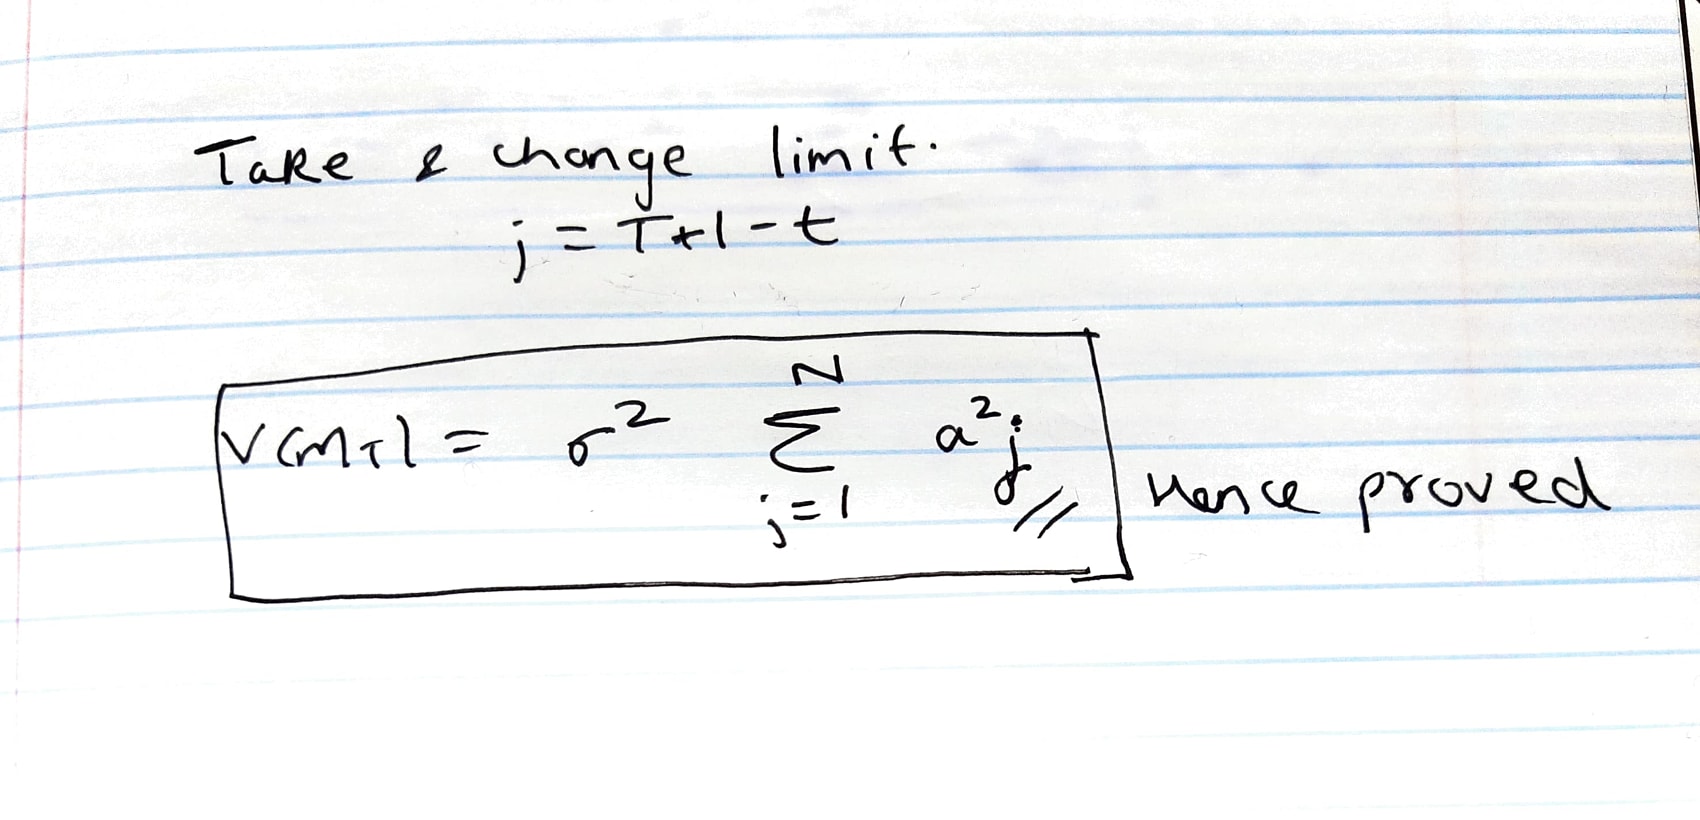 Take & change limit.
j = T+1-t
V(M_T) = σ² Σ_{j=1}^{N} a²_j // Hence proved